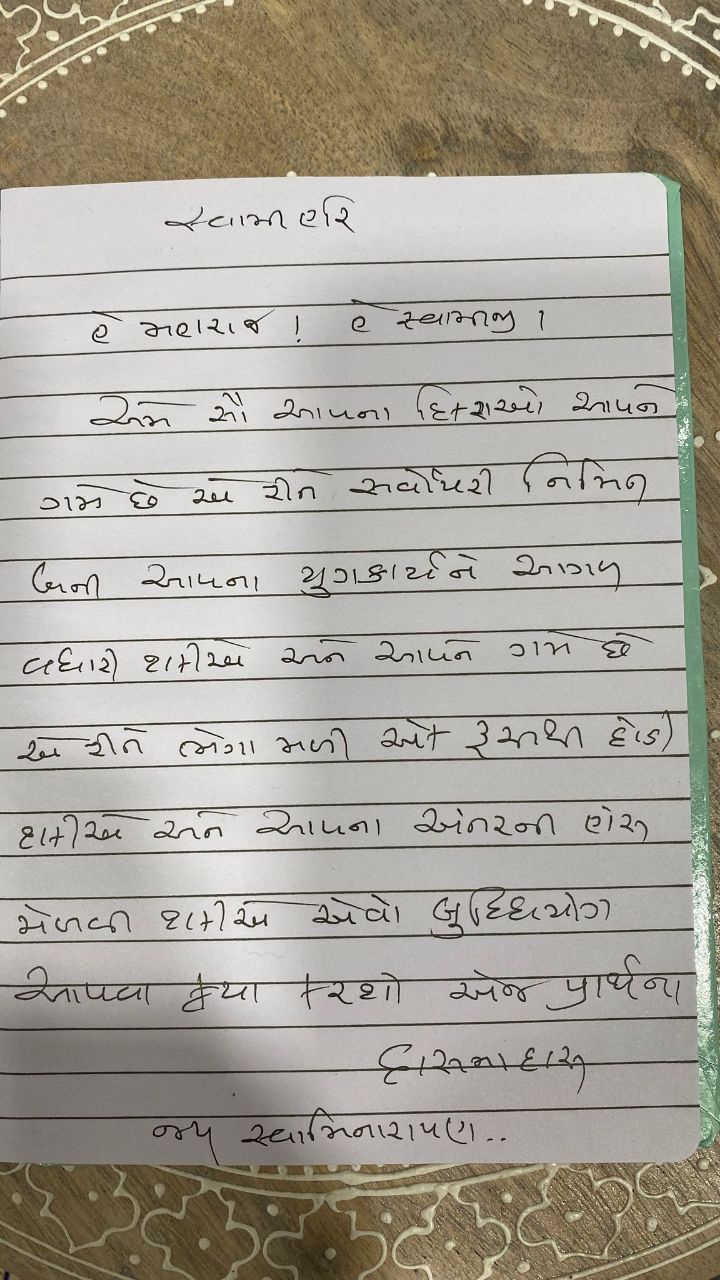 સ્વામીહરિ
હે મહારાજ ! હે સ્વામીજી !
અમે સૌ આપના દિકરાઓ આપને
ગમે છે એ રીતે સર્વોપરી નિમિત્ત
બની આપના યુગકાર્યને આગળ
વધારી શકીએ અને આપને ગમે છે
એ રીતે ભેગા મળી એક રૂચાથી દોડી
શકીએ અને આપના અંતરની હોંશ
મેળવી શકીએ એવો બુદ્ધિયોગ
આપવા કૃપા કરશો એજ પ્રાર્થના
દાસના દાસ
જય સ્વામિનારાયણ..